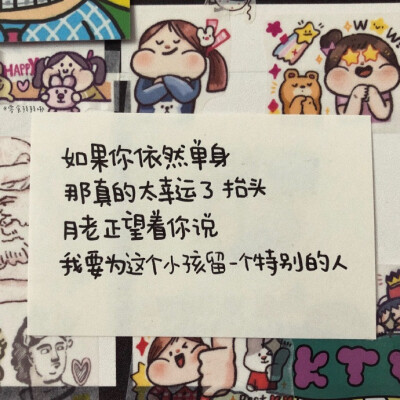 HAPPY
WOW
如果你依然单身
那真的太幸运了 抬头
月老正望着你说
我要为这个小孩留一个特别的人
KT